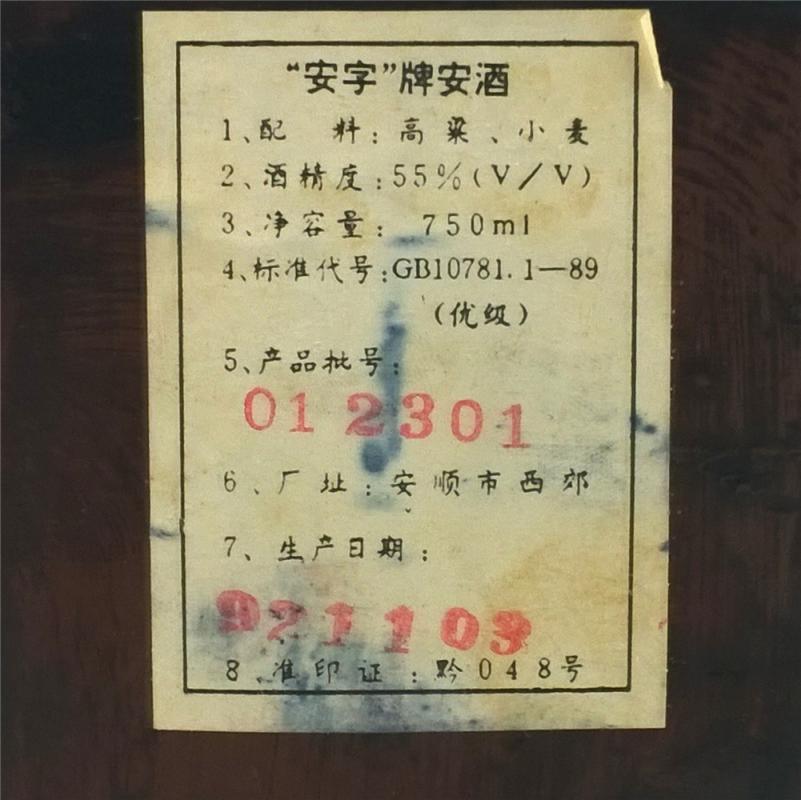 “安字”牌安酒
1、配 料：高粱、小麦
2、酒精度：55%(V/V)
3、净容量： 750ml
4、标准代号：GB10781.1—89
（优级）
5、产品批号：
012301
6、厂 址：安顺市西郊
7、生产日期：
921103
8、准印证：黔048号